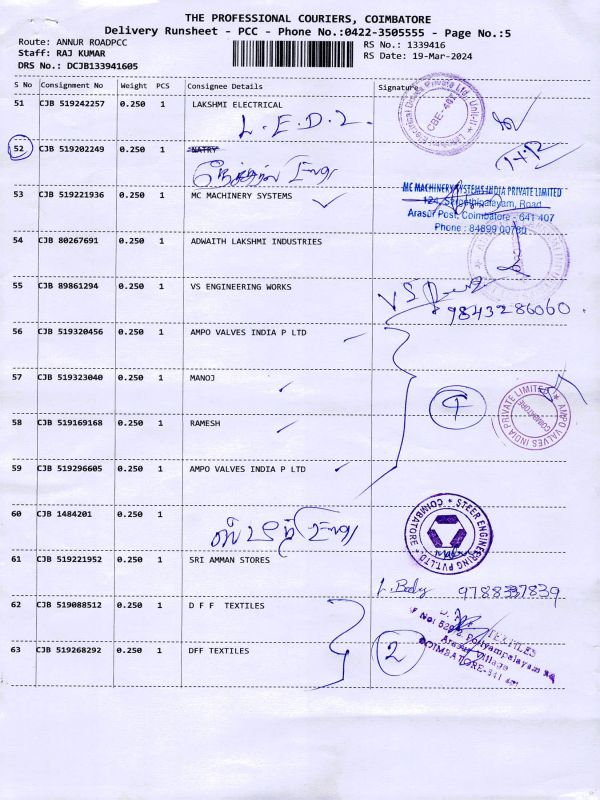 THE PROFESSIONAL COURIERS, COIMBATORE
Delivery Runsheet - PCC - Phone No.:0422-3505555 - Page No.:5
Route: ANNUR ROADPCC
RS No.: 1339416
Staff: RAJ KUMAR
RS Date: 19-Mar-2024
DRS No.: DCJB133941605
S No Consignment No Weight PCS Consignee Details Signature
51 CJB 519242257 0.250 1 LAKSHMI ELECTRICAL
L.E.D.2.
CBE-
52 CJB 519202249 0.250 1 NATRY
Engg
53 CJB 519221936 0.250 1 MC MACHINERY SYSTEMS
MC MACHINERY SYSTEMS INDIA PRIVATE LIMITED
Road
Arasur Post, Coimbatore - 641 407
Phone : 84899 00780
54 CJB 80267691 0.250 1 ADWAITH LAKSHMI INDUSTRIES
55 CJB 89861294 0.250 1 VS ENGINEERING WORKS
VS
9843286060
56 CJB 519320456 0.250 1 AMPO VALVES INDIA P LTD
57 CJB 519323040 0.250 1 MANOJ
AMPO VALVES INDIA PRIVATE LIMITED
COIMBATORE
58 CJB 519169168 0.250 1 RAMESH
59 CJB 519296605 0.250 1 AMPO VALVES INDIA P LTD
60 CJB 1484201 0.250 1
Engg
STEER ENGINEERING PVT.LTD
COIMBATORE
61 CJB 519221952 0.250 1 SRI AMMAN STORES
62 CJB 519088512 0.250 1 D F F TEXTILES
63 CJB 519268292 0.250 1 DFF TEXTILES
2
TEXTILES
Arasur Village
COIMBATORE-641 407